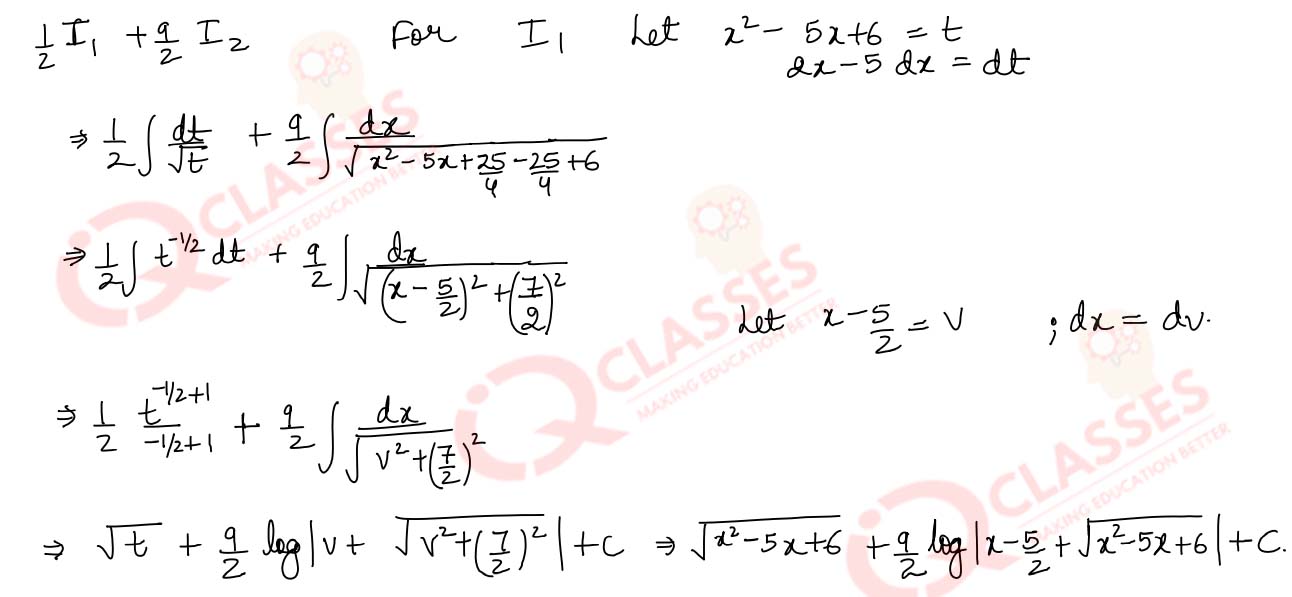 1/2 I₁ + 9/2 I₂ For I₁ Let x² - 5x+6 = t
2x-5 dx = dt
⇒ 1/2 ∫ dt/√t + 9/2 ∫ dx/√(x²-5x+25/4-25/4+6)
⇒ 1/2 ∫ t^(-1/2) dt + 9/2 ∫ dx/√((x-5/2)²+(7/2)²)
Let x-5/2 = v ; dx = dv.
⇒ 1/2 t^(-1/2+1)/(-1/2+1) + 9/2 ∫ dx/√(v²+(7/2)²)
⇒ √t + 9/2 log|v+ √(v²+(7/2)²)|+c ⇒ √(x²-5x+6) + 9/2 log|x-5/2+√(x²-5x+6)|+C.
iQ CLASSES
MAKING EDUCATION BETTER
iQ CLASSES
MAKING EDUCATION BETTER
iQ CLASSES
MAKING EDUCATION BETTER